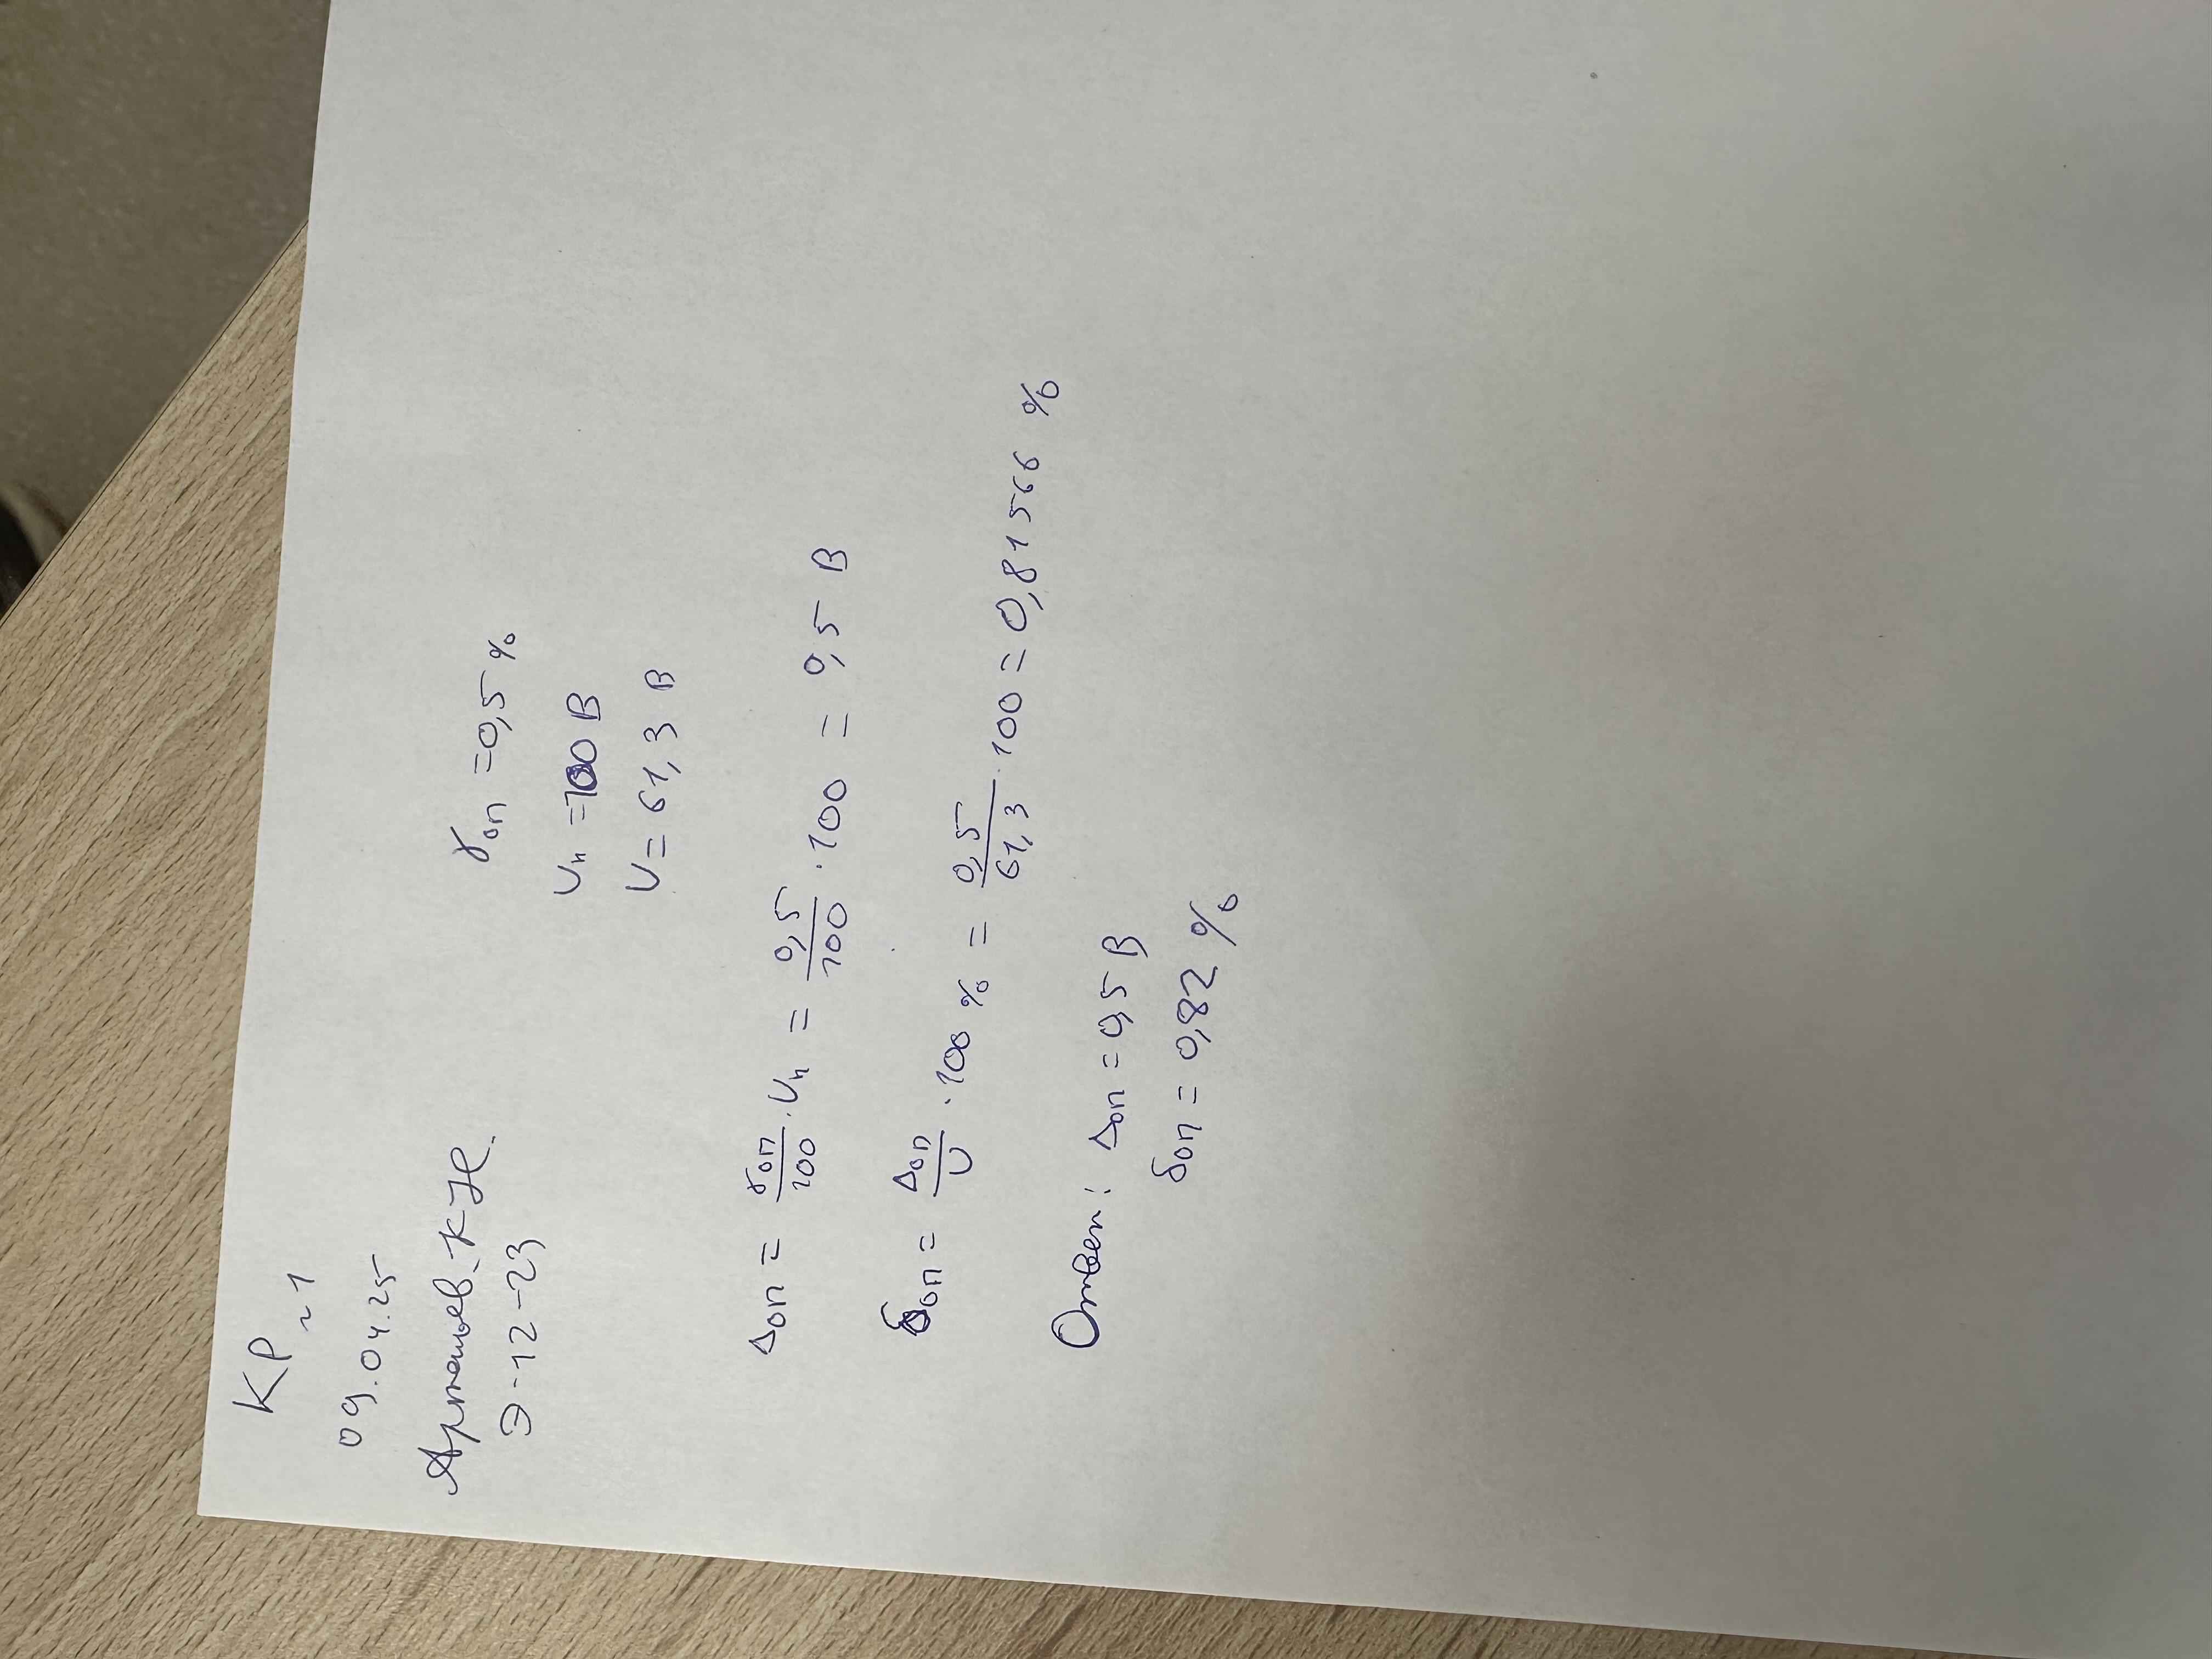 КР ~ 1
09.04.25
Артемьев К.Н.
Э-12-23
γоп = 0,5 %
Uн = 100 В
U = 61,3 В
Δоп = γоп/100 · Uн = 0,5/100 · 100 = 0,5 В
δоп = Δоп/U · 100 % = 0,5/61,3 · 100 = 0,81566 %
Ответ: Δоп = 0,5 В
δоп = 0,82 %